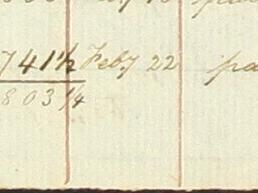 741½ Feby 22 pa
803¼